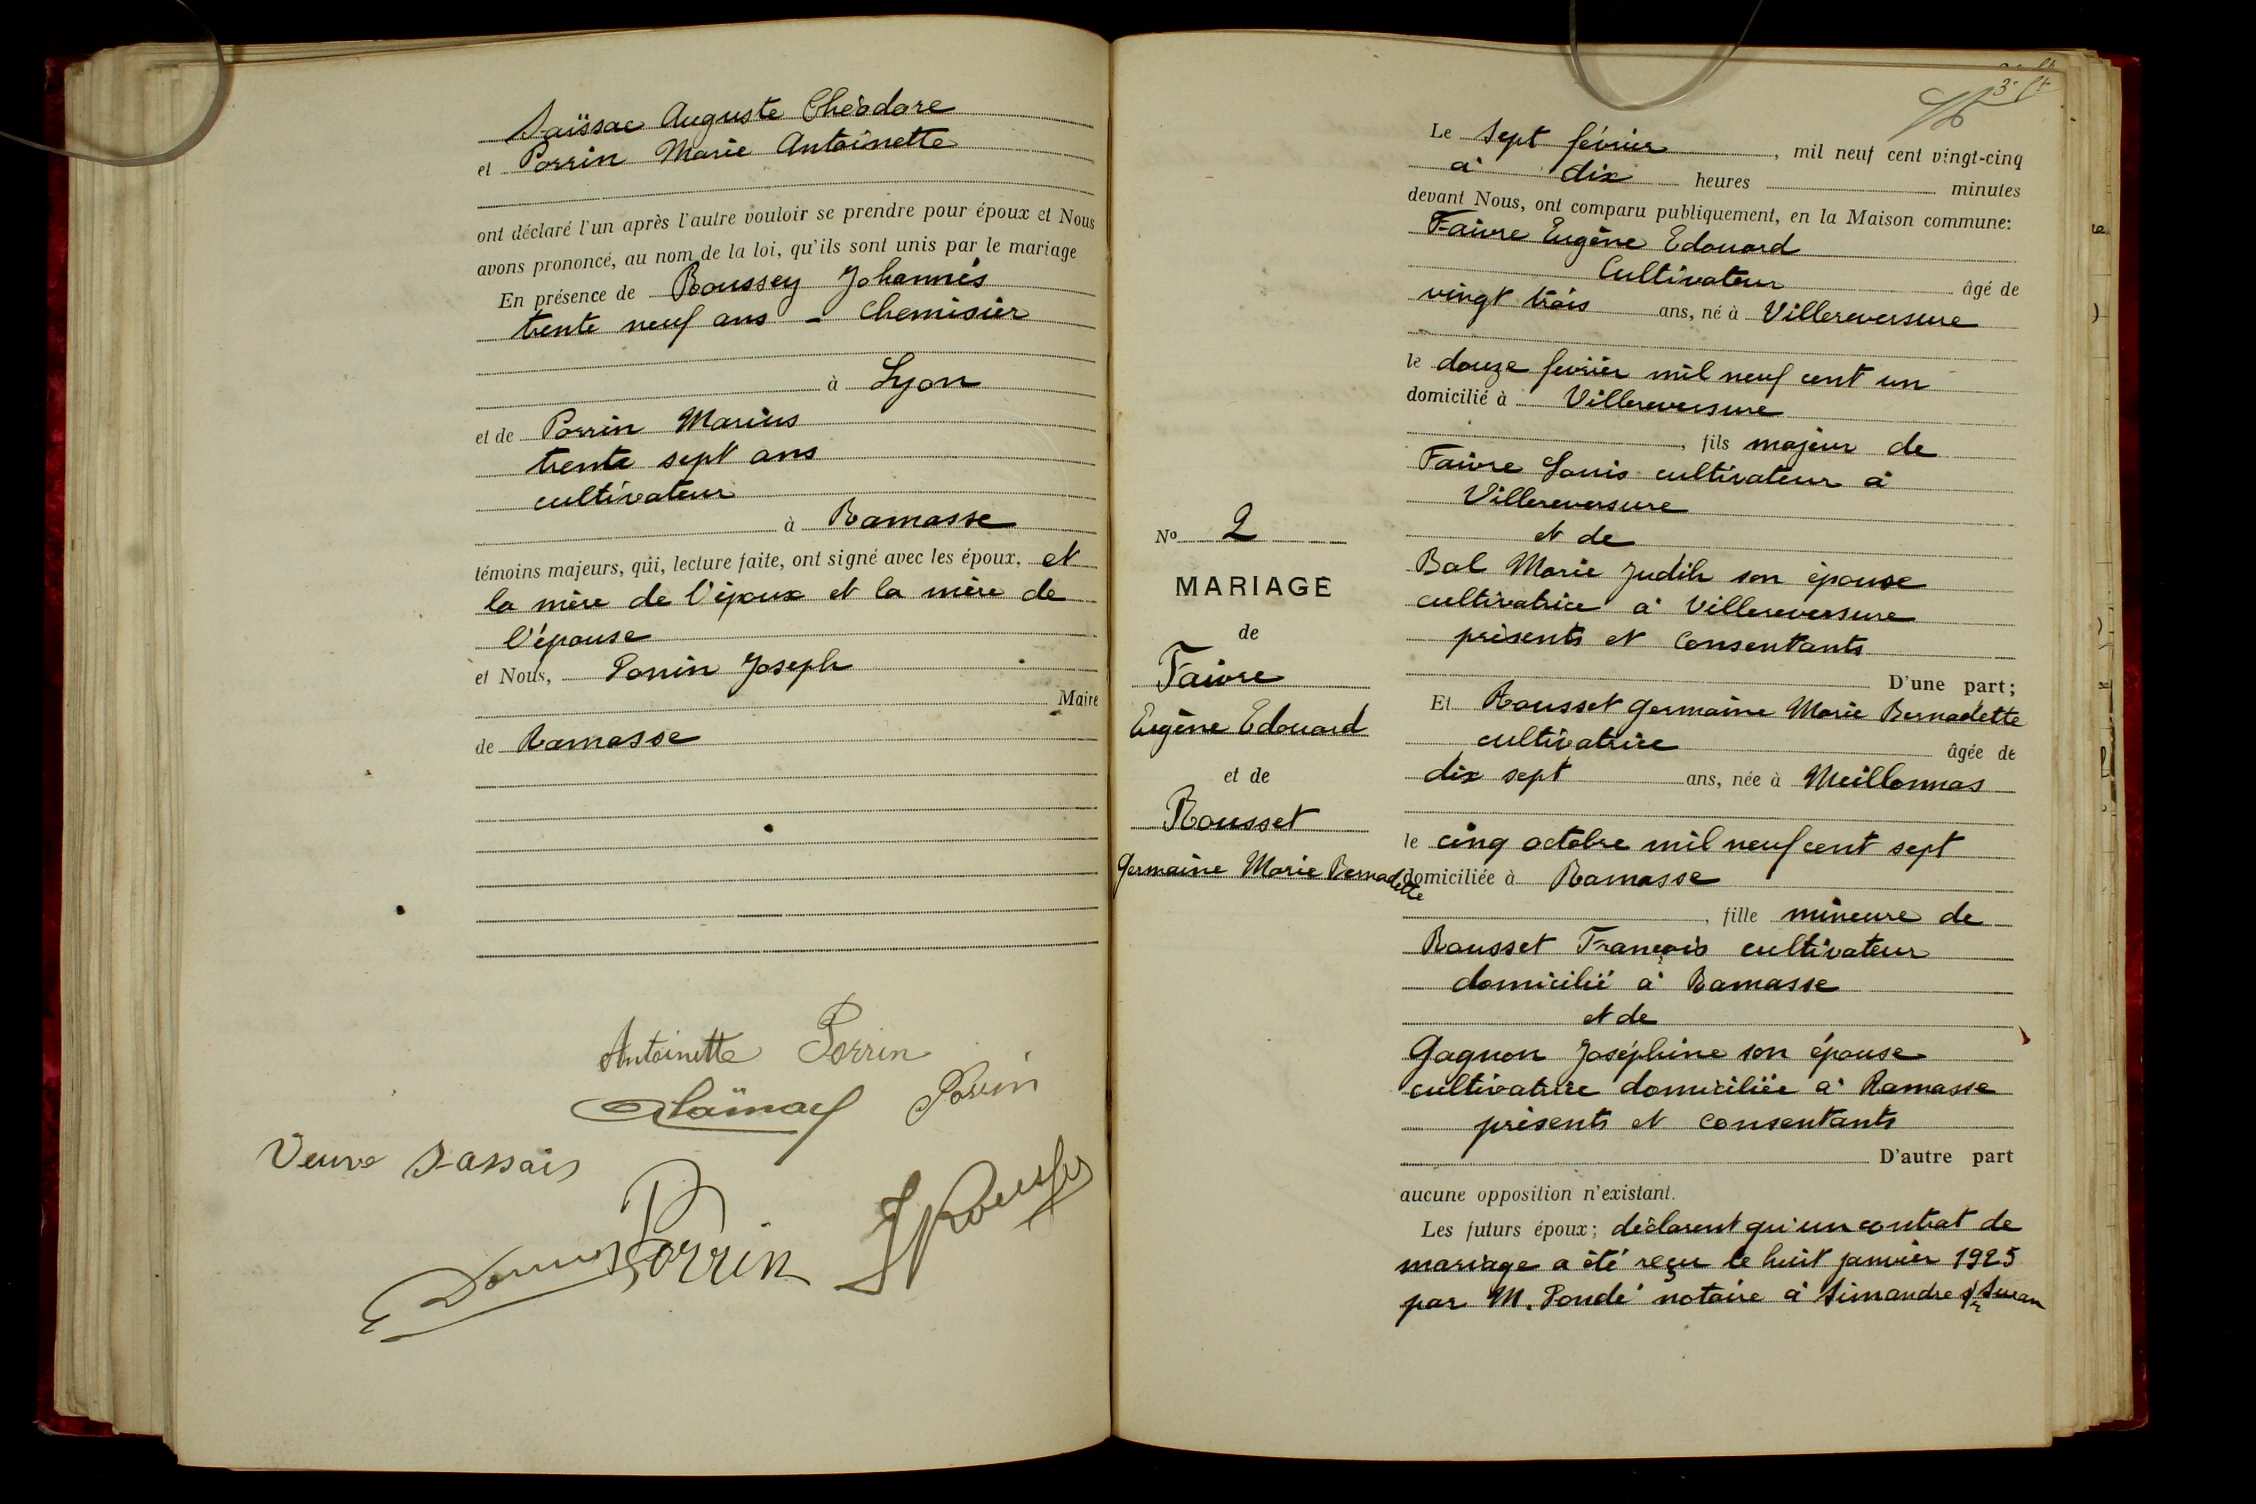 Saïssac Auguste Théodore
et Porrin Marie Antoinette
ont déclaré l'un après l'autre vouloir se prendre pour époux et Nous
avons prononcé, au nom de la loi, qu'ils sont unis par le mariage
En présence de Roussey Johannès
trente neuf ans - chemisier
à Lyon
et de Porrin Marius
trente sept ans
cultivateur
à Ramasse
témoins majeurs, qui, lecture faite, ont signé avec les époux, et
la mère de l'époux et la mère de
l'épouse
et Nous, Ponin Joseph
Maire
de Ramasse
Antoinette Porrin
Porrin
Veuve
Porrin
No 2
MARIAGE
de
Faivre
Eugène Edouard
et de
Rousset
Germaine Marie Bernadette
Le sept février, mil neuf cent vingt-cinq
à dix heures minutes
devant Nous, ont comparu publiquement, en la Maison commune:
Faivre Eugène Edouard
Cultivateur âgé de
vingt trois ans, né à Villereversure
le douze février mil neuf cent un
domicilié à Villereversure
, fils majeur de
Faivre Louis cultivateur à
Villereversure
et de
Bal Marie Judih son épouse
cultivatrice à Villereversure
présents et consentants
D'une part;
Et Rousset Germaine Marie Bernadette
cultivatrice âgée de
dix sept ans, née à Meillonnas
le cinq octobre mil neuf cent sept
domiciliée à Ramasse
, fille mineure de
Rousset François cultivateur
domicilié à Ramasse
et de
Gagnon Joséphine son épouse
cultivatrice domiciliée à Ramasse
présents et consentants
D'autre part
aucune opposition n'existant.
Les futurs époux; déclarent qu'un contrat de
mariage a été reçu le huit janvier 1925
par M. Pondé notaire à Simandre s/r Suran